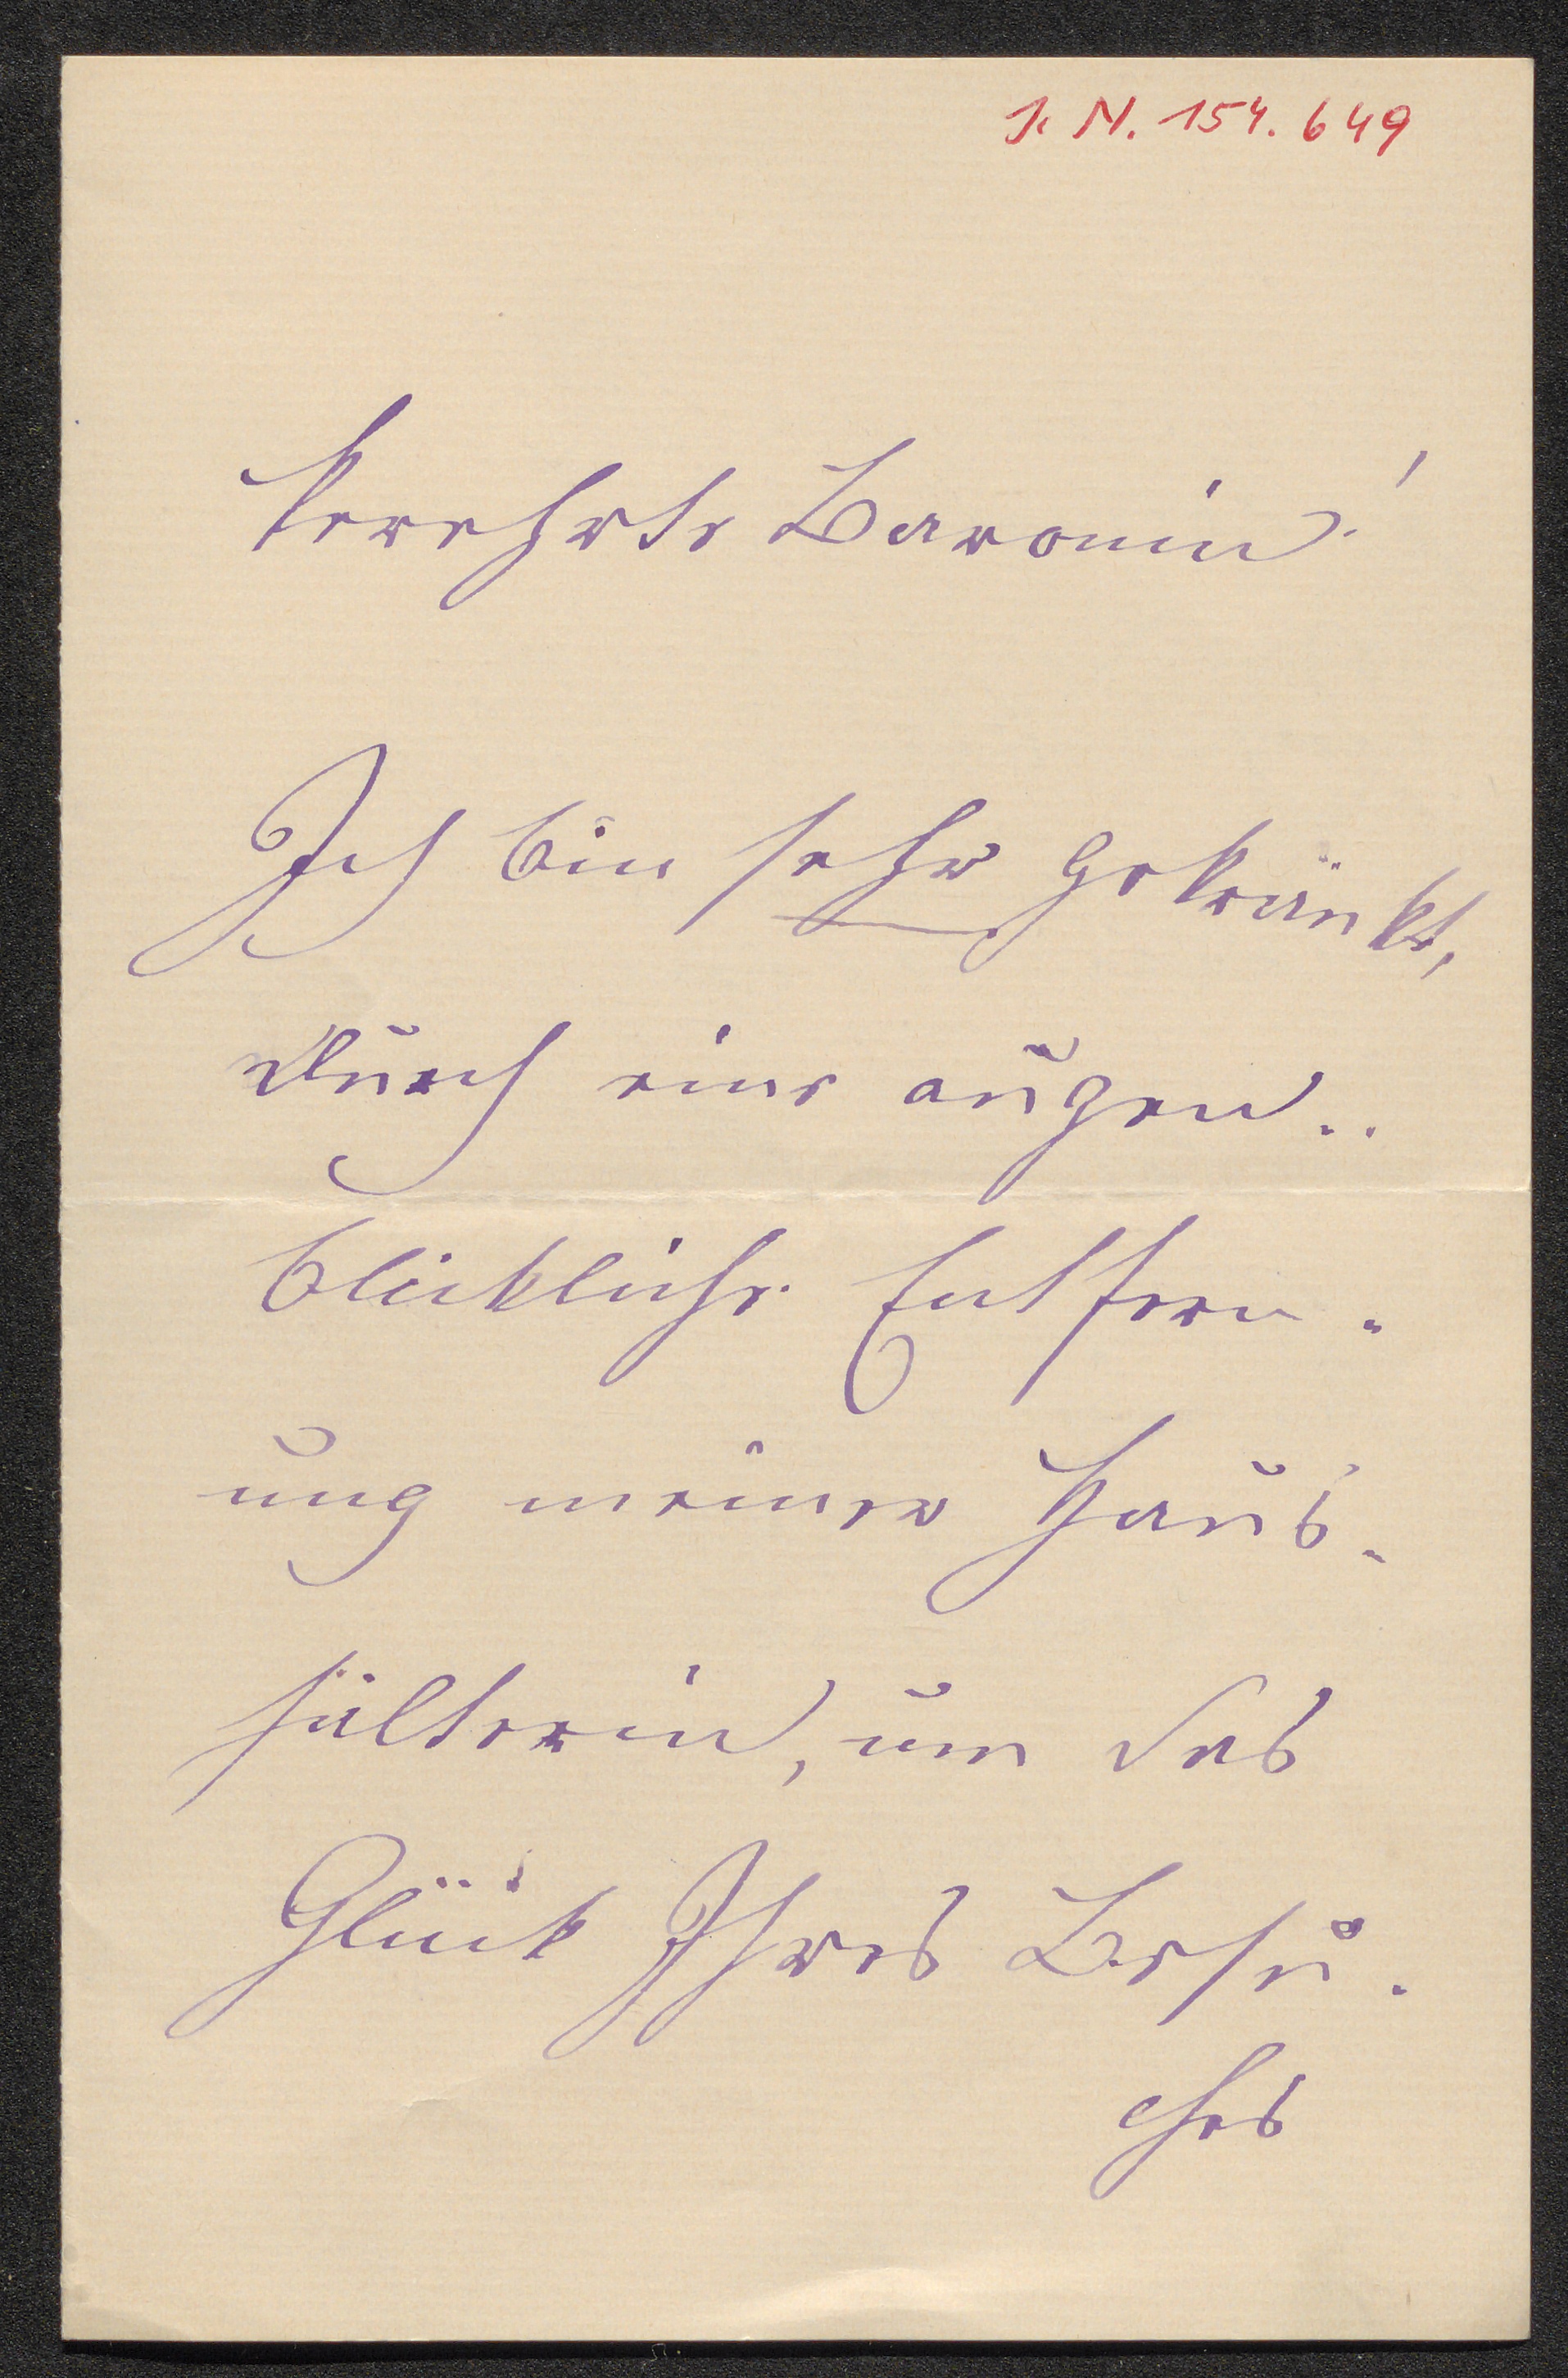 I. N. 154.649
Verehrte Baronin!
Ich bin sehr gekränkt,
durch eine augen-
blickliche Entfern-
ung meiner Haus-
hälterin, um das
Glück Ihres Besu-
ches